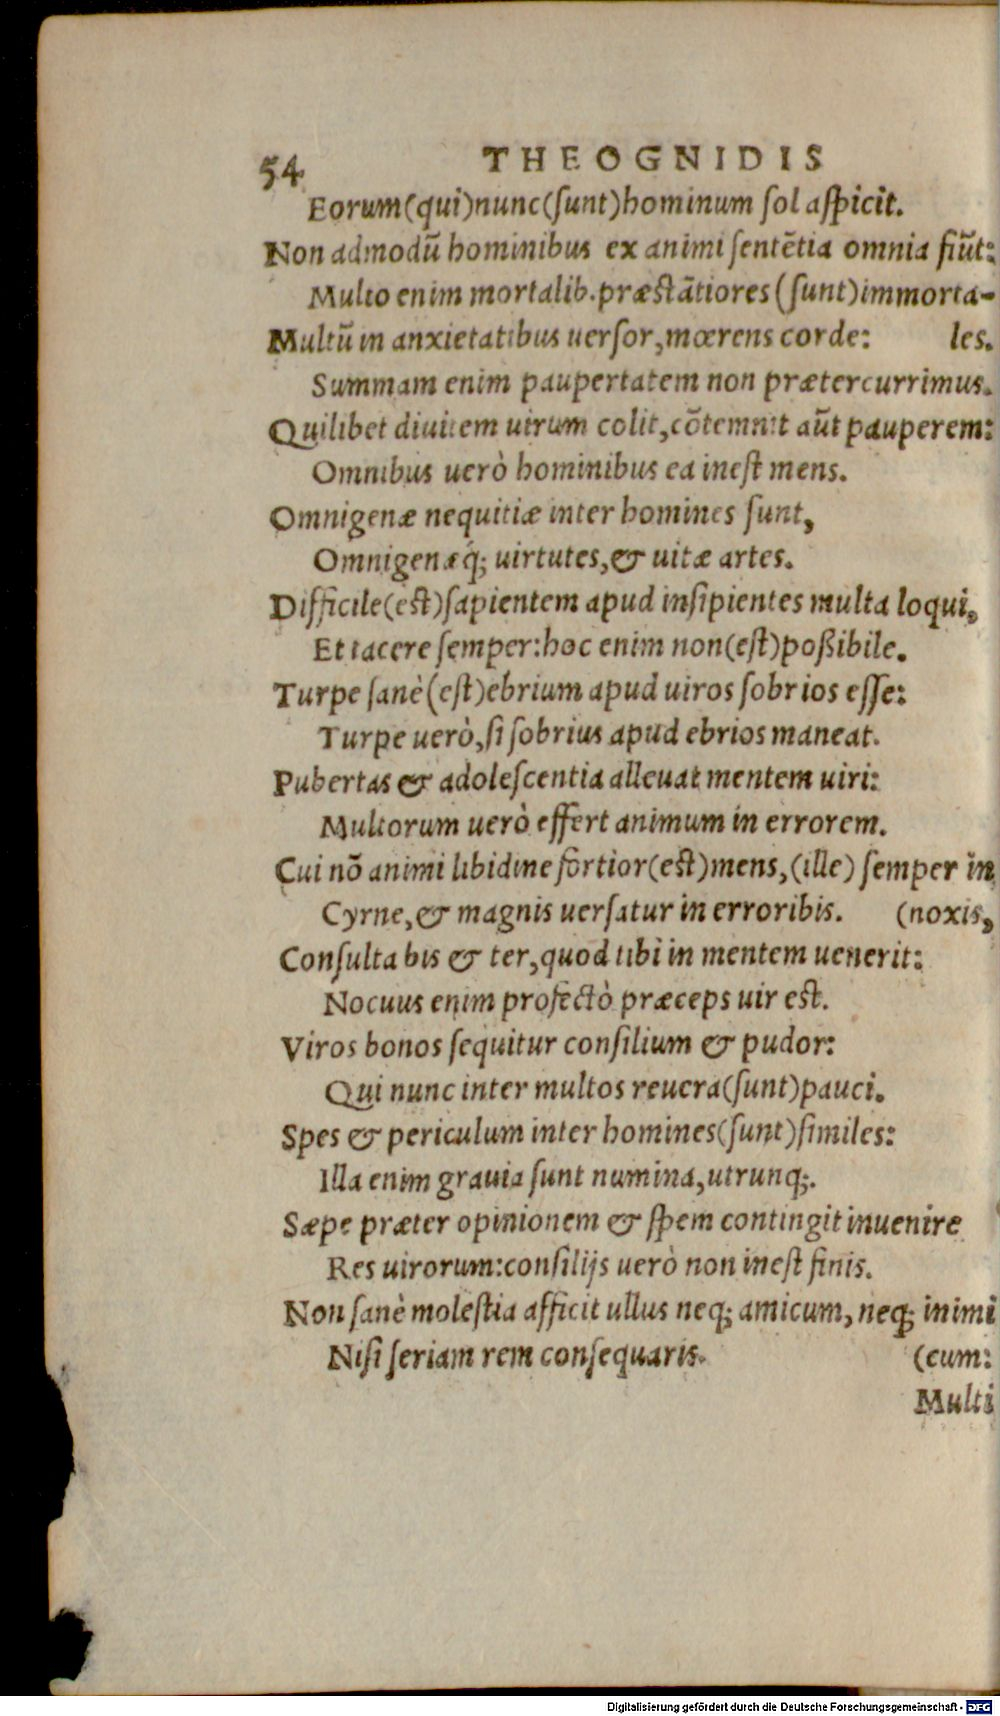 54 THEOGNIDIS
Eorum(qui)nunc(ſunt)hominum ſol aſpicit.
Non admodū hominibus ex animi ſentētia omnia fiūt:
Multo enim mortalib.præſtātiores (ſunt)immorta-
Multū in anxietatibus uerſor,mœrens corde: les.
Summam enim paupertatem non prætercurrimus.
Quilibet diuitem uirum colit,cōtemnit aūt pauperem:
Omnibus uerò hominibus ea ineſt mens.
Omnigenæ nequitiæ inter homines ſunt,
Omnigenæq́; uirtutes,& uitæ artes.
Difficile(eſt)ſapientem apud inſipientes multa loqui,
Et tacere ſemper:hoc enim non(eſt)poßibile.
Turpe ſanè(eſt)ebrium apud uiros ſobrios eſſe:
Turpe uerò,ſi ſobrius apud ebrios maneat.
Pubertas & adoleſcentia alleuat mentem uiri:
Multorum uerò effert animum in errorem.
Cui nō animi libidine fortior(eſt)mens,(ille) ſemper in
Cyrne,& magnis uerſatur in erroribis. (noxis,
Conſulta bis & ter,quod tibi in mentem uenerit:
Nocuus enim profectò præceps uir eſt.
Viros bonos ſequitur conſilium & pudor:
Qui nunc inter multos reuera(ſunt)pauci.
Spes & periculum inter homines(ſunt)ſimiles:
Illa enim grauia ſunt numina,utrunq;.
Sæpe præter opinionem & ſpem contingit inuenire
Res uirorum:conſilijs uerò non ineſt finis.
Non ſanè moleſtia afficit ullus neq; amicum, neq; inimi
Niſi ſeriam rem conſequaris. (cum:
Multi
Digitalisierung gefördert durch die Deutsche Forschungsgemeinschaft - DFG